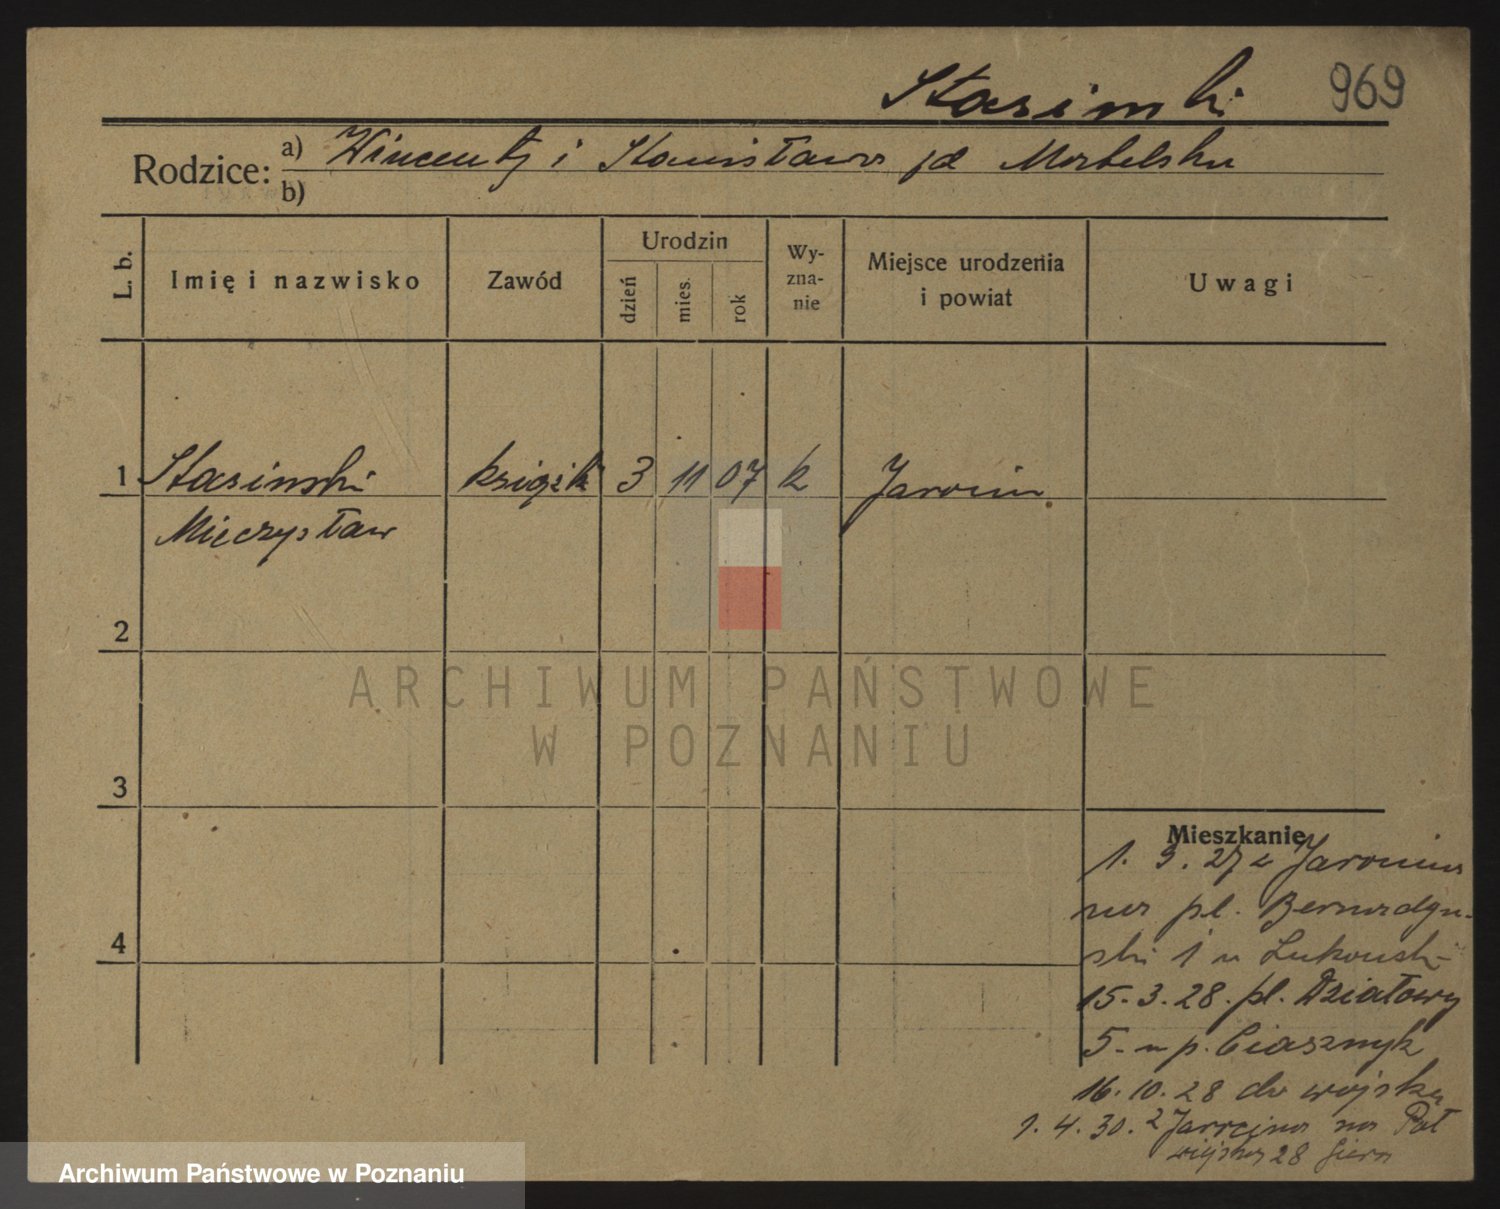 Stasinski 969
Rodzice: a) Wincenty i Stanisława
b)
L. b. Imię i nazwisko Zawód Urodzin dzień mies. rok Wy-zna-nie Miejsce urodzenia i powiat Uwagi
1 Stasinski 3 11 07 k Jarocin
Mieczysław
2
ARCHIWUM PAŃSTWOWE
W POZNANIU
3
Mieszkanie
1. 9. 27 z Jarocina
na pl. Bernardyń-
ski 1 u
4
15. 3. 28. pl. Działowy
5 - u p.
16. 10. 28 do wojska
1. 4. 30. z Jarocina na
wiejska 28
Archiwum Państwowe w Poznaniu